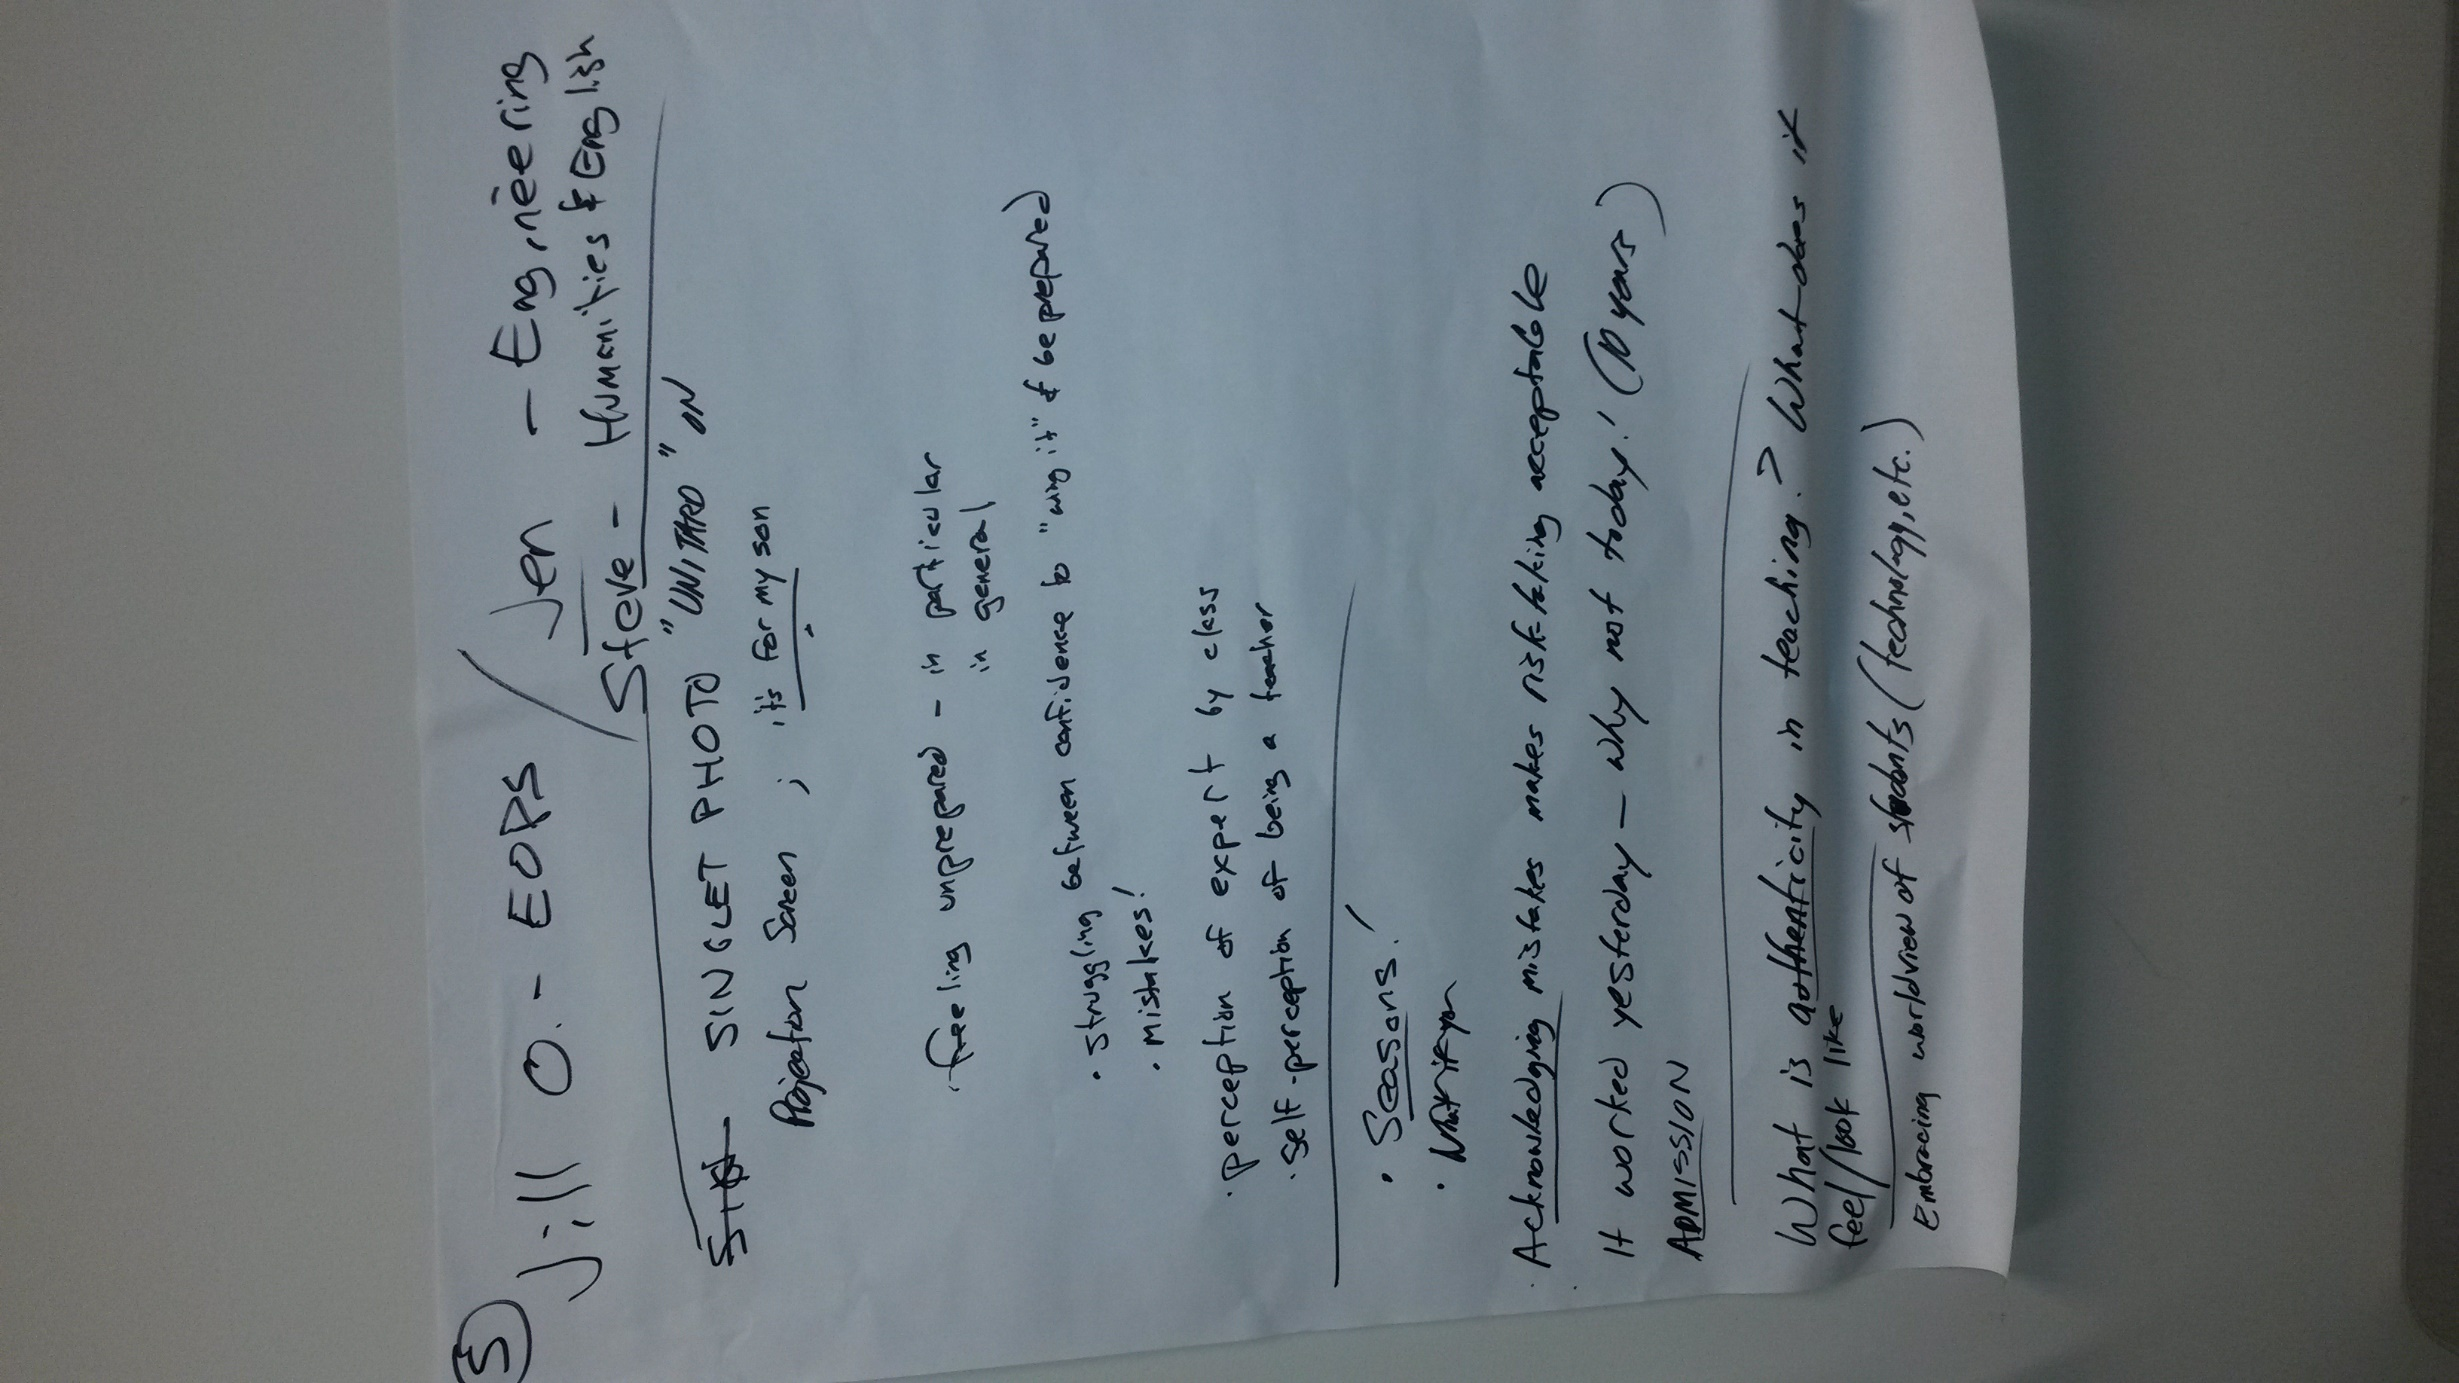 5
Jill O. - EOPS / Jen - Engineering
Steve - Humanities & English
SINGLET PHOTO "UNITARD" ON
Projection Screen ; it's for my son
. feeling unprepared - in particular
in general
. struggling between confidence to "wing it" & be prepared)
. mistakes!
. perception of expert by class
. self-perception of being a teacher
. Seasons!
. What if you
. Acknowledging mistakes makes risk-taking acceptable
. It worked yesterday - why not today! (10 years)
ADMISSION
What is authenticity in teaching? What does it
feel/look like
Embracing worldview of students (technology, etc.)